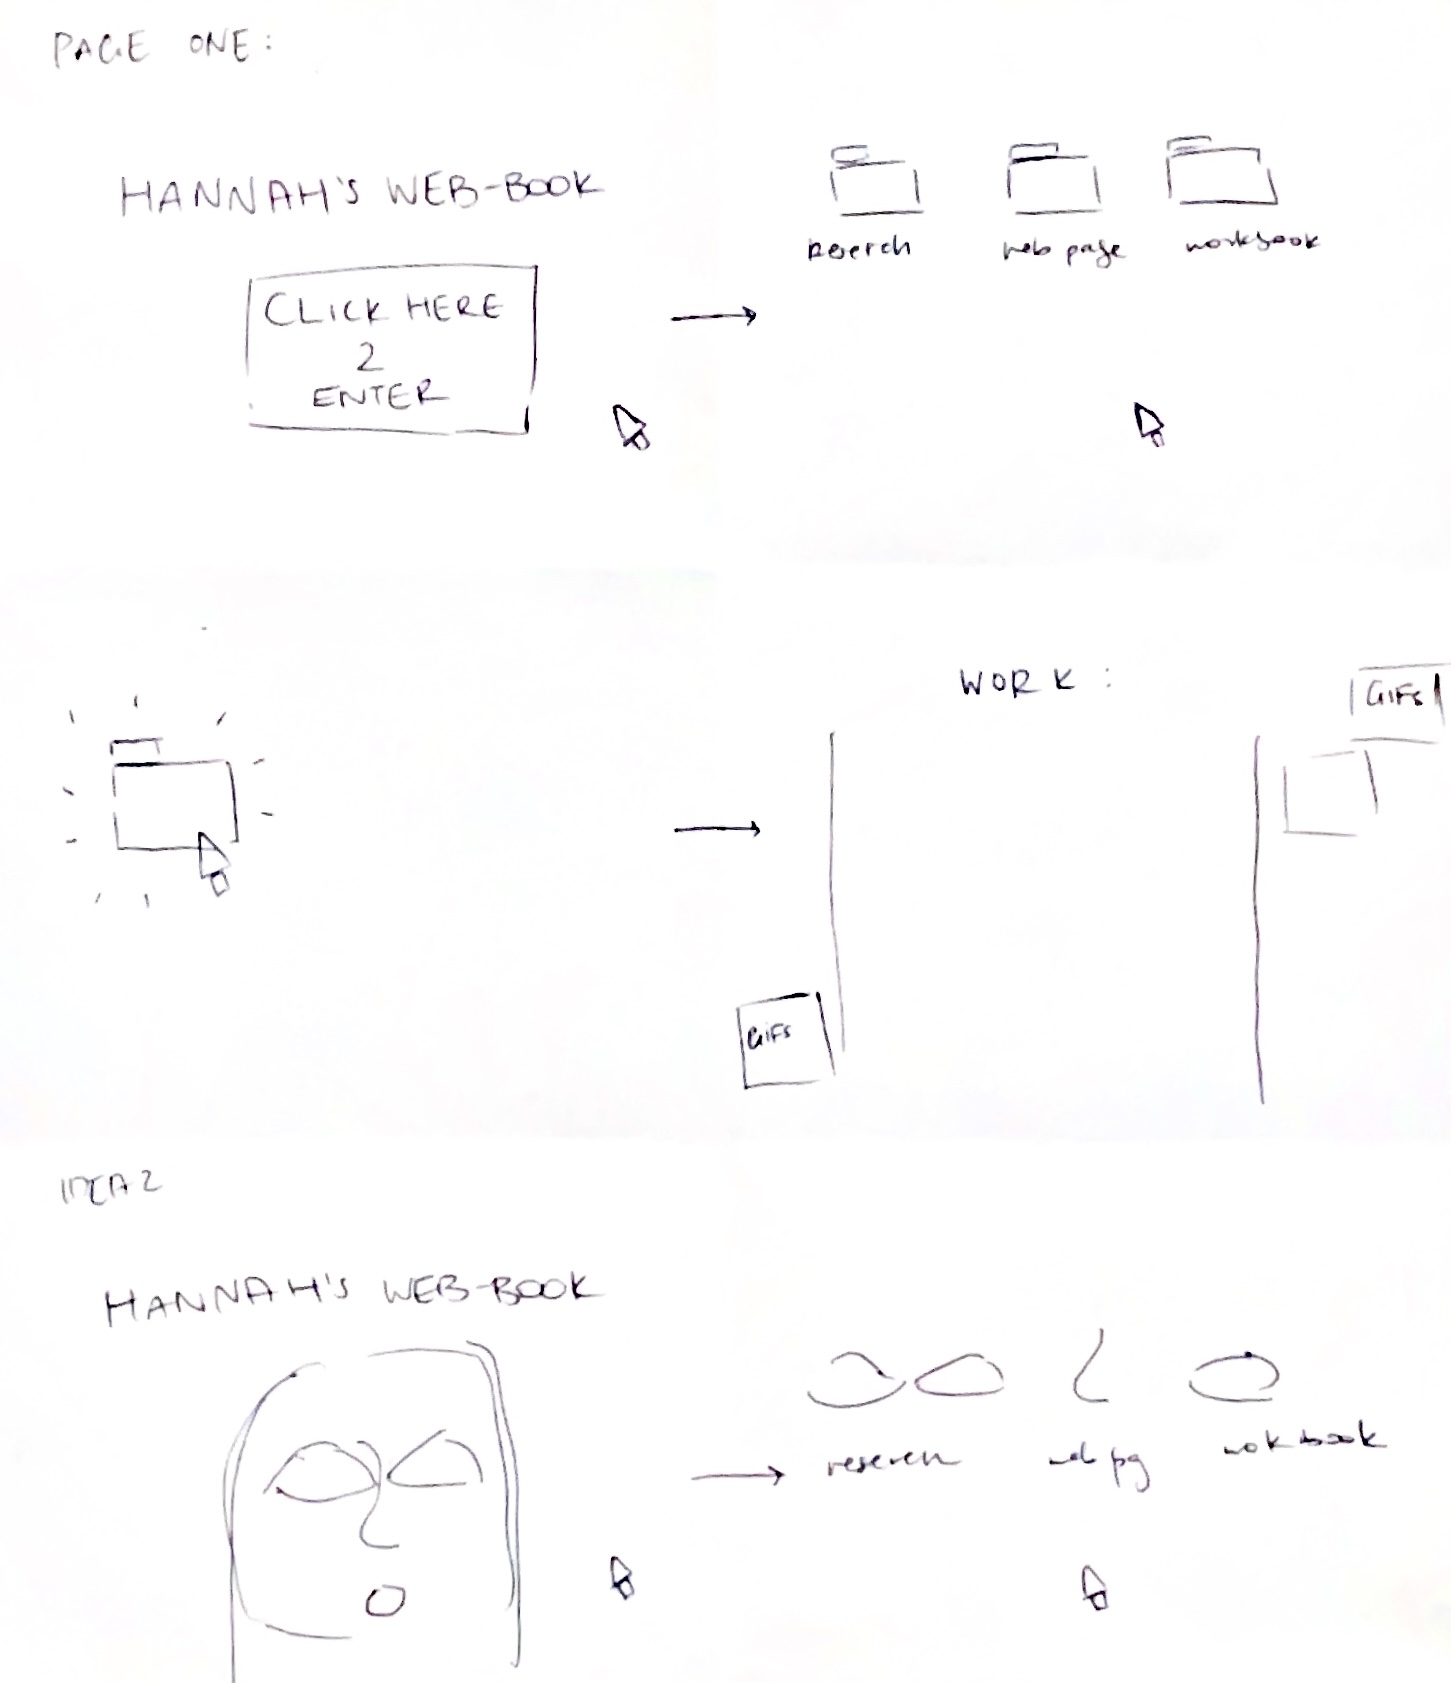 PAGE ONE:
HANNAH'S WEB-BOOK
CLICK HERE
2
ENTER
reserch
web page
workbook
WORK:
GIFs
GIFs
IDEA 2
HANNAH'S WEB-BOOK
reserch
web pg
workbook